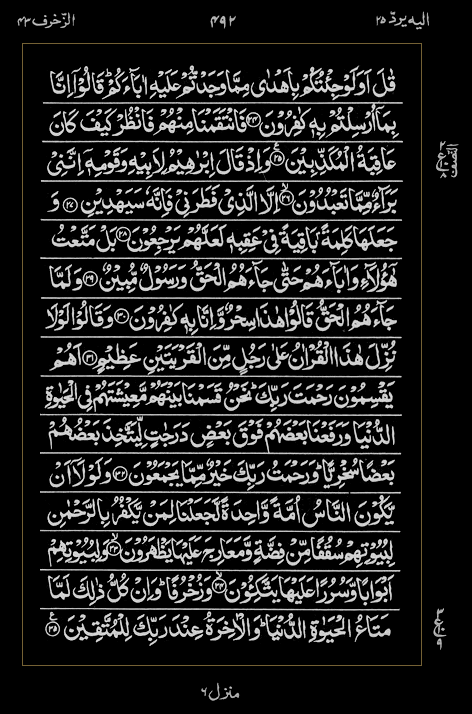 الیه یردّ ۲۵ ۴۹۲ الزّخرف ۴۳
قٰلَ اَوَلَوْ جِئْتُكُمْ بِاَهْدٰی مِمَّا وَجَدْتُّمْ عَلَیْهِ اٰبَآءَكُمْ ؕ قَالُوْۤا اِنَّا
بِمَاۤ اُرْسِلْتُمْ بِهٖ كٰفِرُوْنَ ﴿۲۴﴾ فَانْتَقَمْنَا مِنْهُمْ فَانْظُرْ كَیْفَ كَانَ
عَاقِبَةُ الْمُكَذِّبِیْنَ ﴿۲۵﴾ وَ اِذْ قَالَ اِبْرٰهِیْمُ لِاَبِیْهِ وَ قَوْمِهٖۤ اِنَّنِیْ
بَرَآءٌ مِّمَّا تَعْبُدُوْنَ ﴿۲۶﴾ اِلَّا الَّذِیْ فَطَرَنِیْ فَاِنَّهٗ سَیَهْدِیْنِ ﴿۲۷﴾ وَ
جَعَلَهَا كَلِمَةًۢ بَاقِیَةً فِیْ عَقِبِهٖ لَعَلَّهُمْ یَرْجِعُوْنَ ﴿۲۸﴾ بَلْ مَتَّعْتُ
هٰۤؤُلَآءِ وَ اٰبَآءَهُمْ حَتّٰی جَآءَهُمُ الْحَقُّ وَ رَسُوْلٌ مُّبِیْنٌ ﴿۲۹﴾ وَ لَمَّا
جَآءَهُمُ الْحَقُّ قَالُوْا هٰذَا سِحْرٌ وَّ اِنَّا بِهٖ كٰفِرُوْنَ ﴿۳۰﴾ وَ قَالُوْا لَوْلَا
نُزِّلَ هٰذَا الْقُرْاٰنُ عَلٰی رَجُلٍ مِّنَ الْقَرْیَتَیْنِ عَظِیْمٍ ﴿۳۱﴾ اَهُمْ
یَقْسِمُوْنَ رَحْمَتَ رَبِّكَ ؕ نَحْنُ قَسَمْنَا بَیْنَهُمْ مَّعِیْشَتَهُمْ فِی الْحَیٰوةِ
الدُّنْیَا وَ رَفَعْنَا بَعْضَهُمْ فَوْقَ بَعْضٍ دَرَجٰتٍ لِّیَتَّخِذَ بَعْضُهُمْ
بَعْضًا سُخْرِیًّا ؕ وَ رَحْمَتُ رَبِّكَ خَیْرٌ مِّمَّا یَجْمَعُوْنَ ﴿۳۲﴾ وَ لَوْلَاۤ اَنْ
یَّكُوْنَ النَّاسُ اُمَّةً وَّاحِدَةً لَّجَعَلْنَا لِمَنْ یَّكْفُرُ بِالرَّحْمٰنِ
لِبُیُوْتِهِمْ سُقُفًا مِّنْ فِضَّةٍ وَّ مَعَارِجَ عَلَیْهَا یَظْهَرُوْنَ ﴿۳۳﴾ وَ لِبُیُوْتِهِمْ
اَبْوَابًا وَّ سُرُرًا عَلَیْهَا یَتَّكِـُٔوْنَ ﴿۳۴﴾ وَ زُخْرُفًا ؕ وَ اِنْ كُلُّ ذٰلِكَ لَمَّا
مَتَاعُ الْحَیٰوةِ الدُّنْیَا ؕ وَ الْاٰخِرَةُ عِنْدَ رَبِّكَ لِلْمُتَّقِیْنَ ﴿۳۵﴾
منزل ۶